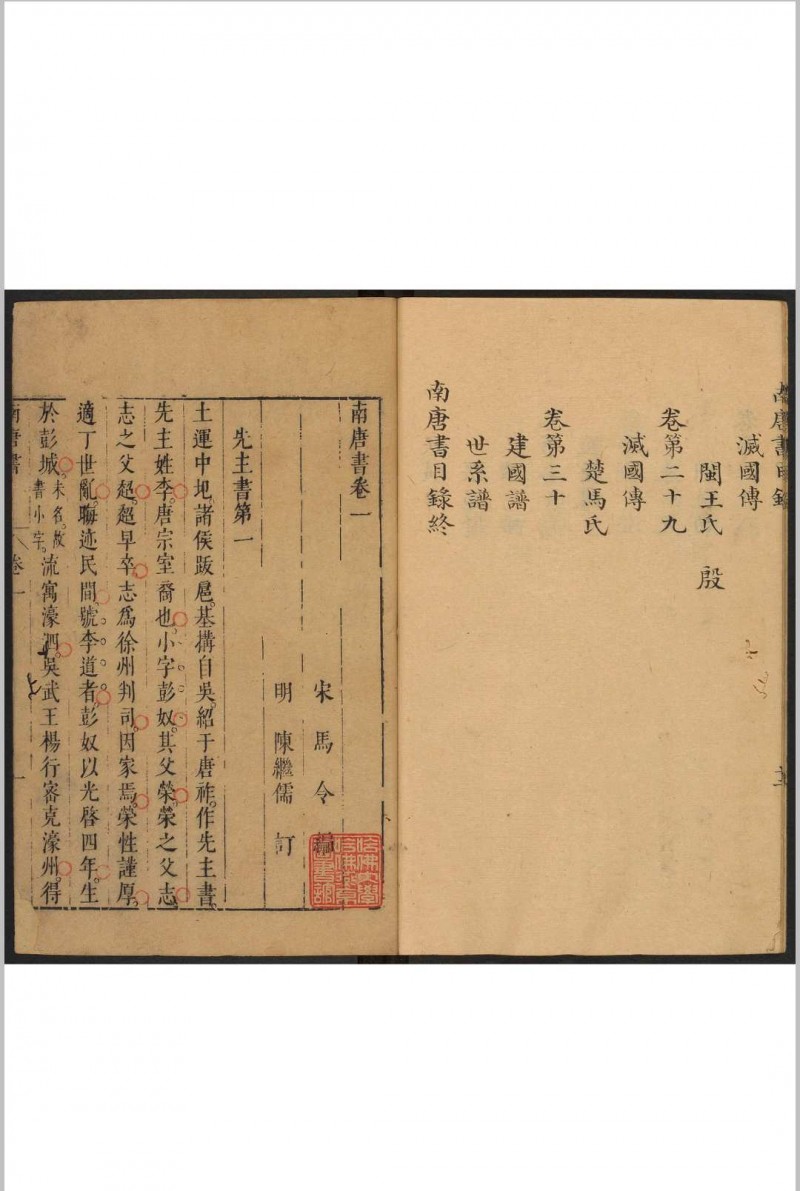 南唐書目錄
滅國傳
閩王氏 殷
卷第二十九
滅國傳
楚馬氏
卷第三十
建國譜
世系譜
南唐書目錄終
南唐書卷一
宋馬令編
明陳繼儒訂
先主書第一
土運中圮。諸侯跋扈。基搆自吳。紹于唐祚。作先主書。
先主姓李。唐宗室裔也。小字彭奴。其父榮。榮之父志。
志之父超。超早卒。志爲徐州判司。因家焉。榮性謹厚。
適丁世亂。晦迹民間。號李道者。彭奴以光啓四年。生
於彭城。未名。故書小字。流寓濠泗。吳武王楊行密克濠州。得
南唐書 卷一 一